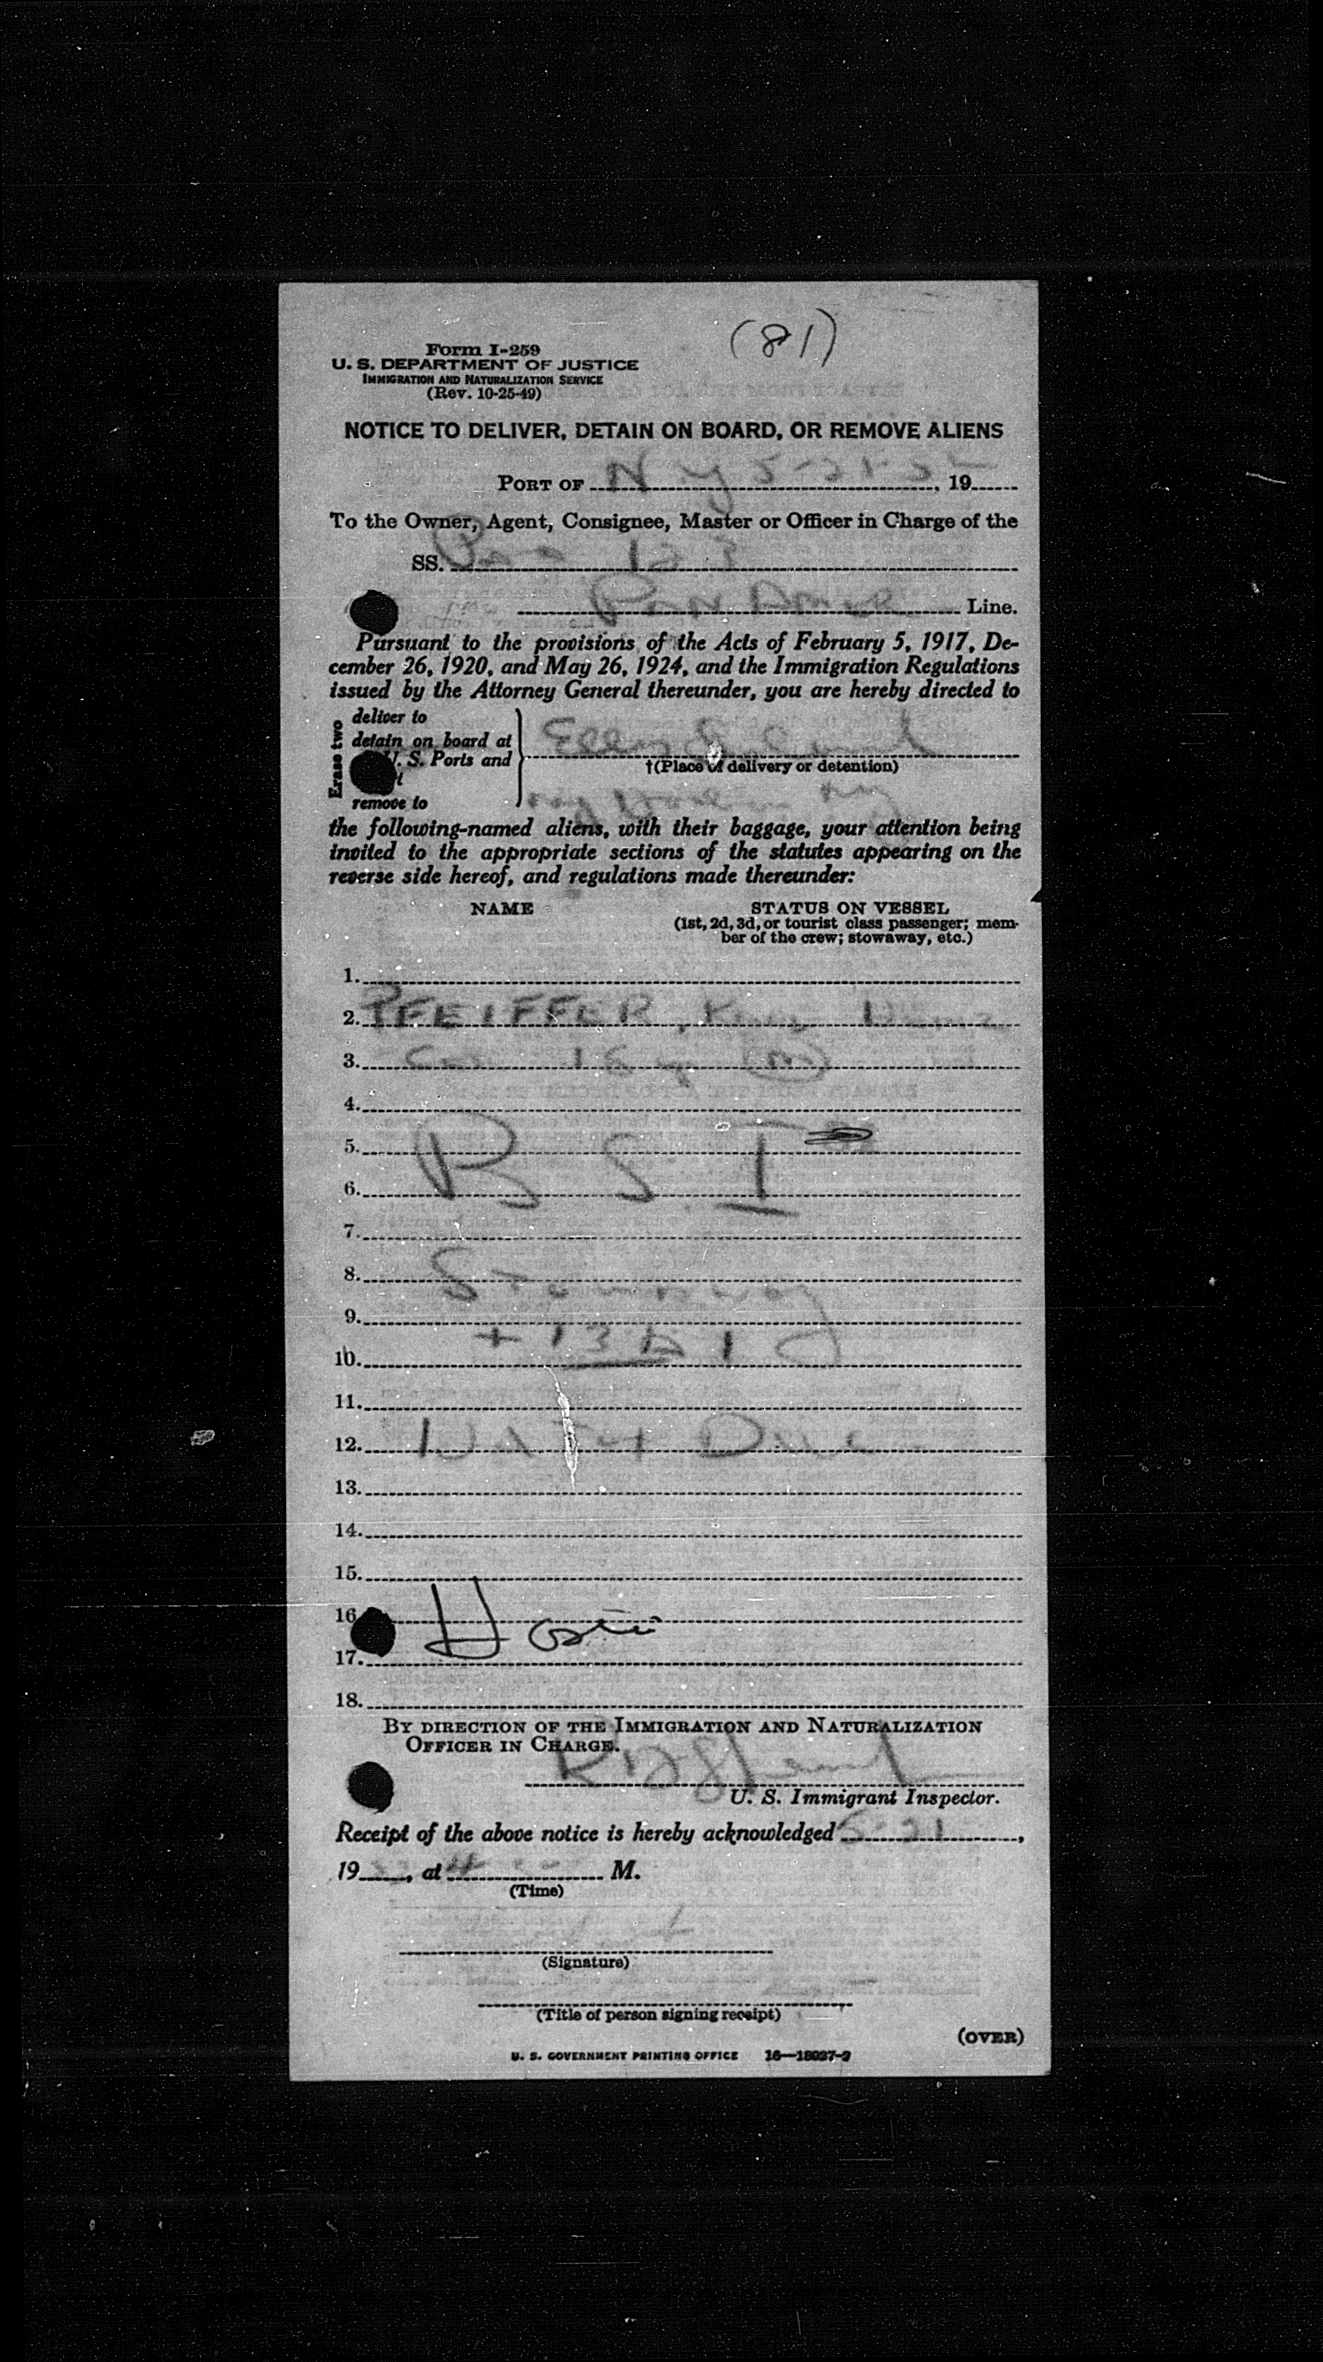 (81)
Form I-259
U. S. DEPARTMENT OF JUSTICE
IMMIGRATION AND NATURALIZATION SERVICE
(Rev. 10-25-49)
NOTICE TO DELIVER, DETAIN ON BOARD, OR REMOVE ALIENS
PORT OF N Y 5-21-52, 19
To the Owner, Agent, Consignee, Master or Officer in Charge of the
SS.
Line.
Pursuant to the provisions of the Acts of February 5, 1917, De-
cember 26, 1920, and May 26, 1924, and the Immigration Regulations
issued by the Attorney General thereunder, you are hereby directed to
Erase two
deliver to
detain on board at
U. S. Ports and
remove to
Ellis Island
†(Place of delivery or detention)
the following-named aliens, with their baggage, your attention being
invited to the appropriate sections of the statutes appearing on the
reverse side hereof, and regulations made thereunder:
NAME STATUS ON VESSEL
(1st, 2d, 3d, or tourist class passenger; mem-
ber of the crew; stowaway, etc.)
1.
2. PFEIFFER,
3. (M)
4.
5. B S I
6.
7.
8. Stowaway
9.
10. + 13
11.
12.
13.
14.
15.
16
17.
18.
BY DIRECTION OF THE IMMIGRATION AND NATURALIZATION
OFFICER IN CHARGE.
U. S. Immigrant Inspector.
Receipt of the above notice is hereby acknowledged 5-21,
19 , at 4 M.
(Time)
(Signature)
(Title of person signing receipt)
(OVER)
U. S. GOVERNMENT PRINTING OFFICE 16—18027-2